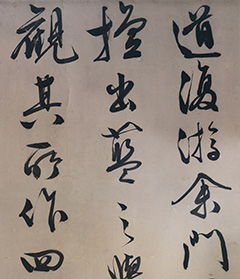 道復游余門
擅出藍之譽
觀其所作四